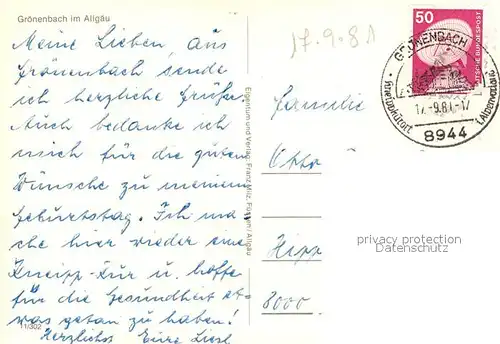 Grönenbach im Allgäu
Meine Lieben, aus
Grönenbach sende
ich herzliche Grüße.
Auch bedanke ich
mich für die guten
Wünsche zu meinem
Geburtstag. Ich ma
che hier wieder eine
Kneipp-Kur u. hoffe
für die Gesundheit et
was getan zu haben!
Herzlichst Eure Liesl
11/302
Eigentum und Verlag: Franz Milz, Füssen/Allgäu
17.9.81
Familie
Otto
Hipp
8000
50
DEUTSCHE BUNDESPOST
GRÖNENBACH
Kneippkurort
17.-9.81.-17
8944
privacy protection
watermark